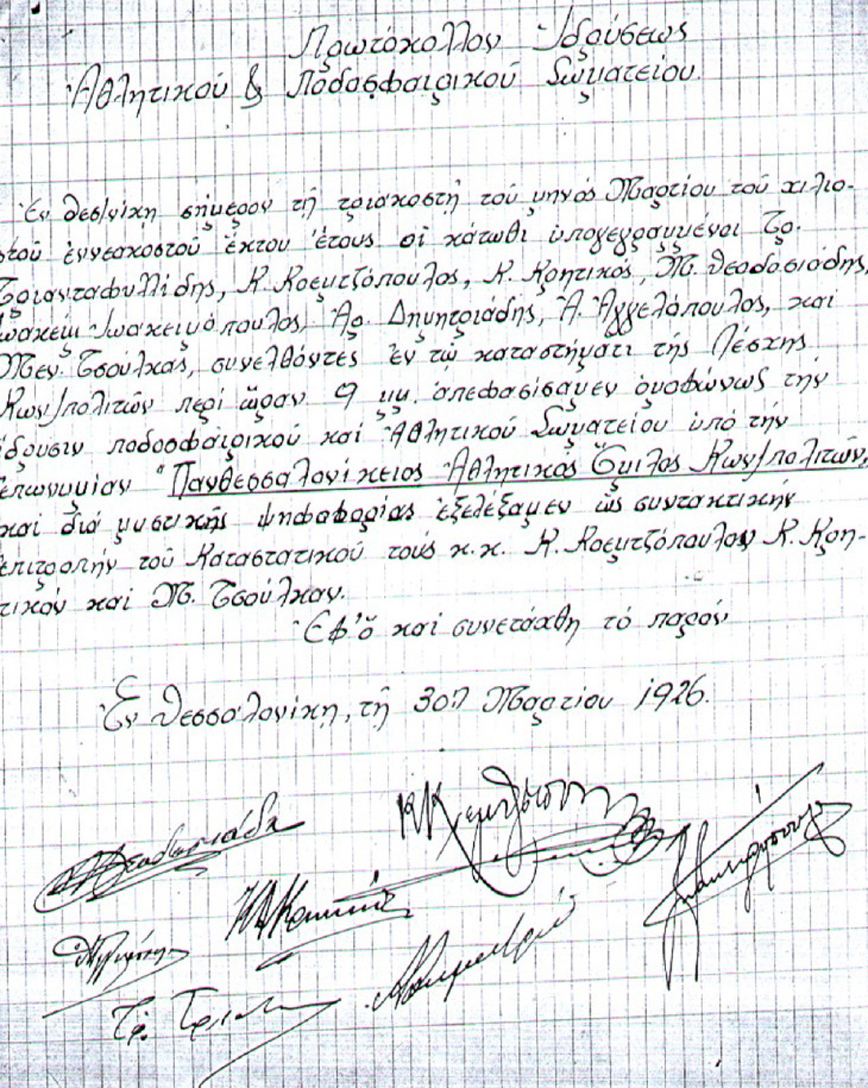 Πρωτόκολλον Ἱδρύσεως
Ἀθλητικοῦ & Ποδοσφαιρικοῦ Σωματείου.
Ἐν Θεσ/νίκῃ σήμερον τῇ τριακοστῇ τοῦ μηνός Μαρτίου τοῦ χιλιο-
στοῦ ἐννεακοστοῦ ἕκτου ἔτους οἱ κάτωθι ὑπογεγραμμένοι Τρ.
Τριανταφυλλίδης, Κ. Κρεμτζόπουλος, Κ. Κρητικός, Μ. Θεοδοσιάδης,
Ἰωακείμ Ἰωακειμόπουλος, Ἀρ. Δημητριάδης, Ἀ. Ἀγγελόπουλος, καί
Μεν. Τσούλκας, συνελθόντες ἐν τῷ καταστήματι τῆς Λέσχης
Κων/πολιτῶν περί ὥραν 9 μμ. ἀπεφασίσαμεν ὁμοφώνως τήν
ἵδρυσιν ποδοσφαιρικοῦ καί Ἀθλητικοῦ Σωματείου ὑπό τήν
ἐπωνυμίαν "Πανθεσσαλονίκειος Ἀθλητικός Ὅμιλος Κων/πολιτῶν,
καί διά μυστικῆς ψηφοφορίας ἐξελέξαμεν ὡς συντακτικήν
ἐπιτροπήν τοῦ Καταστατικοῦ τούς κ.κ. Κ. Κρεμτζόπουλον Κ. Κρη-
τικόν καί Μ. Τσούλκαν.
Ἐφ' ὅ καί συνετάχθη τό παρόν
Ἐν Θεσσαλονίκῃ, τῇ 30ῃ Μαρτίου 1926.